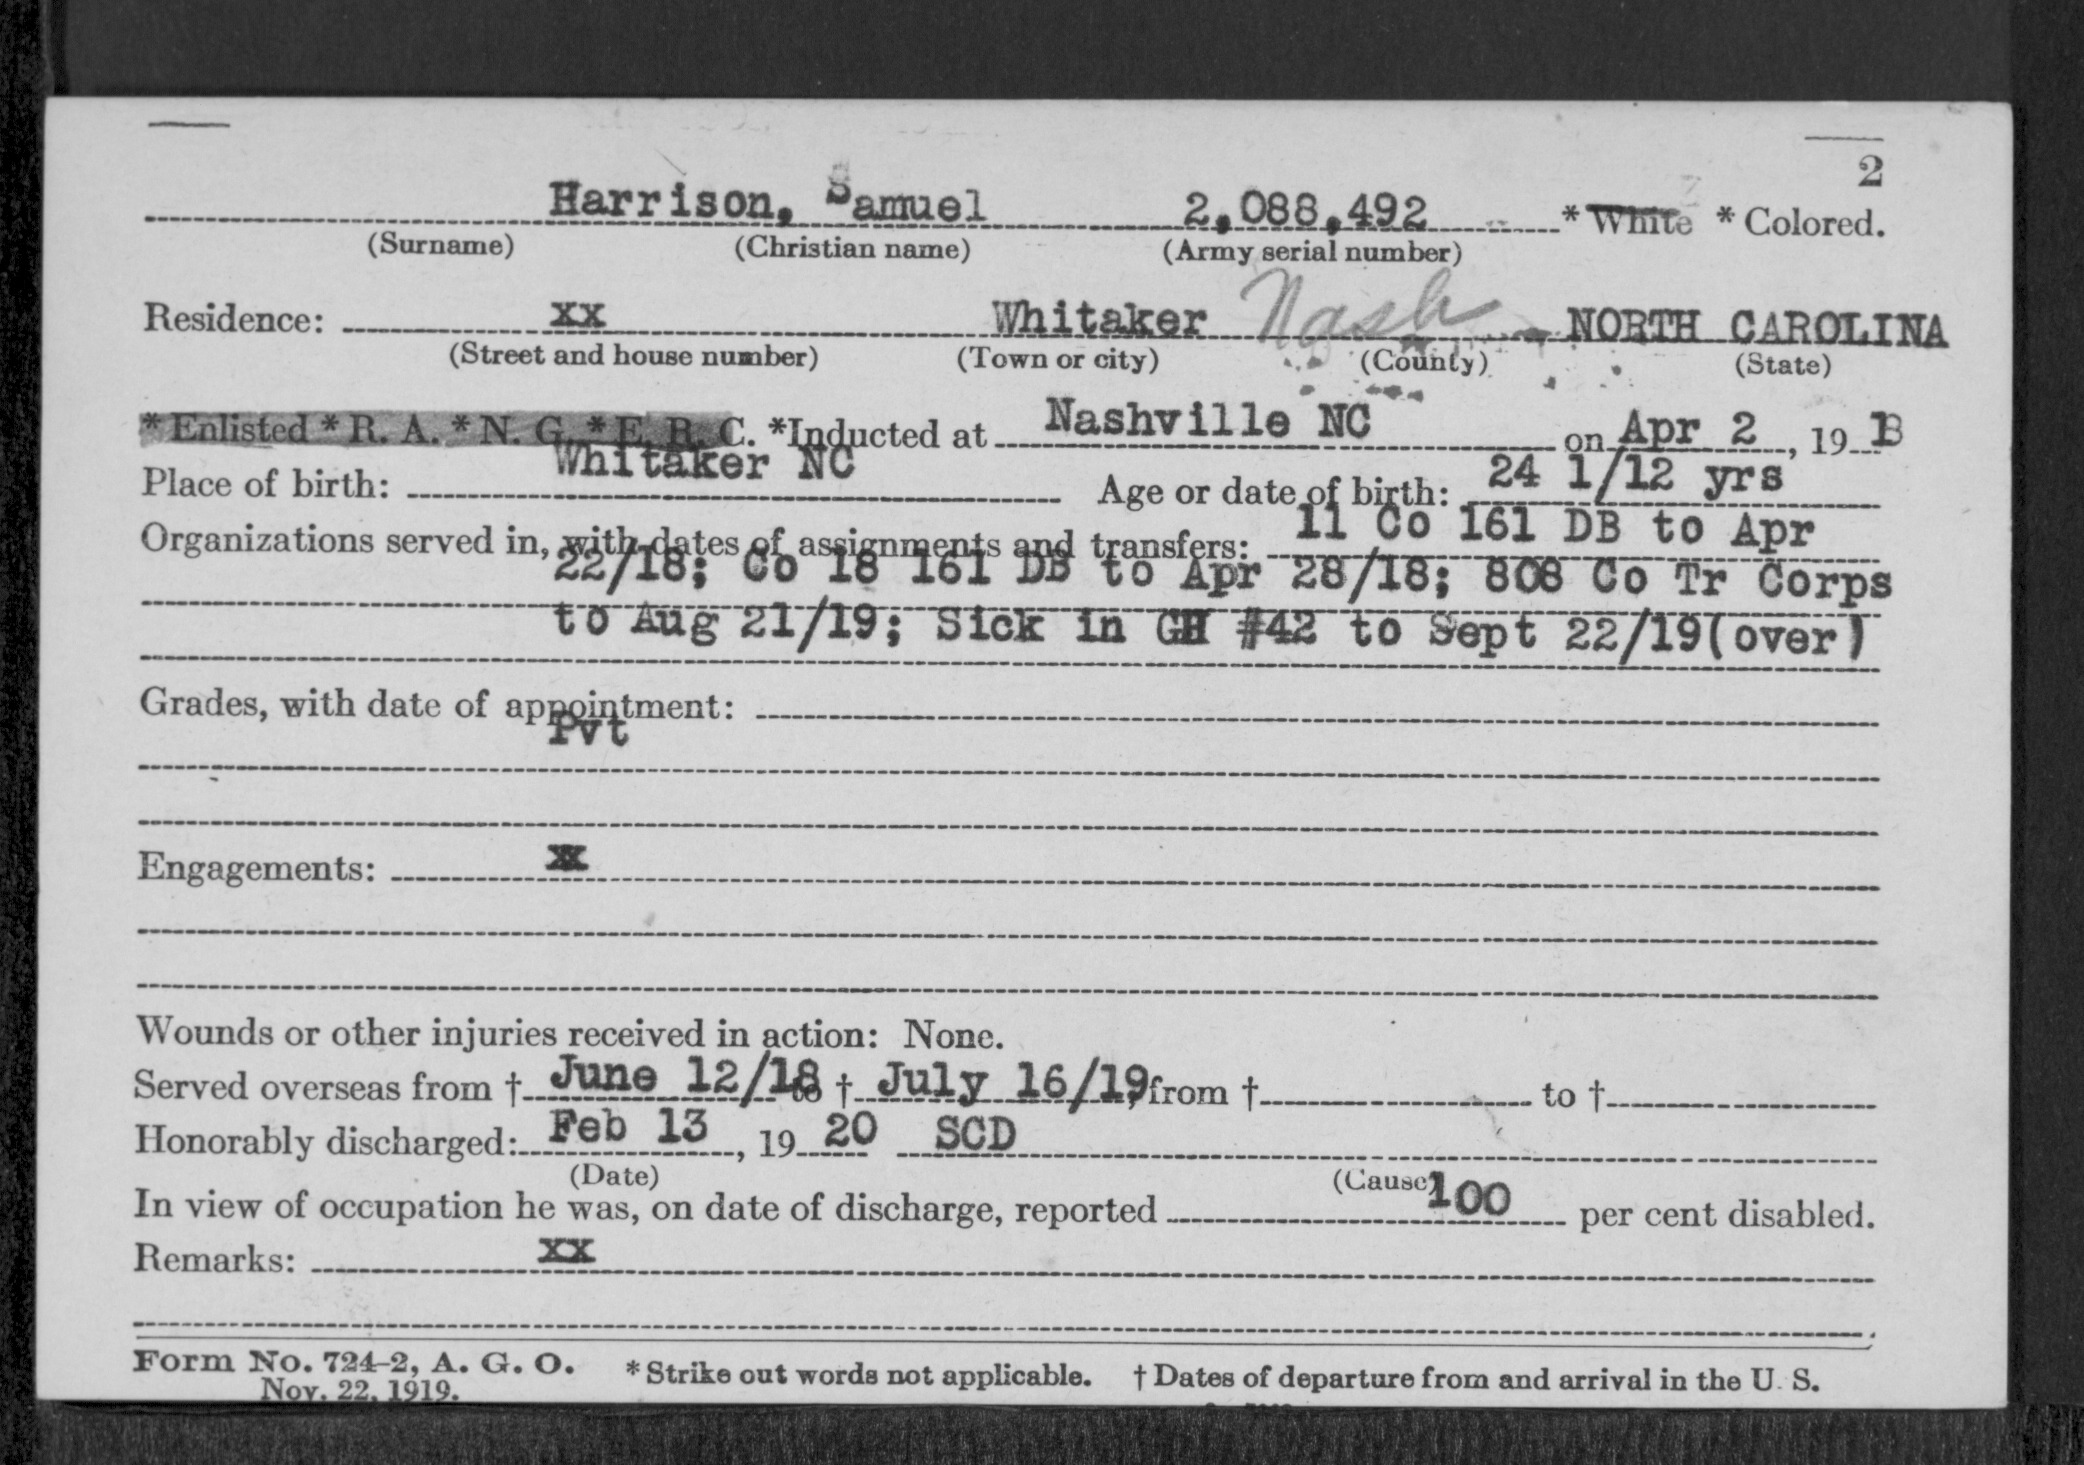 2
Harrison, Samuel 2,088,492 * White * Colored.
(Surname) (Christian name) (Army serial number)
Residence: xx Whitaker Nash NORTH CAROLINA
(Street and house number) (Town or city) (County) (State)
* Enlisted * R. A. * N. G. * E. R. C. *Inducted at Nashville NC on Apr 2, 19 18
Place of birth: Whitaker NC Age or date of birth: 24 1/12 yrs
Organizations served in, with dates of assignments and transfers: 11 Co 161 DB to Apr
22/18; Co 18 161 DB to Apr 28/18; 808 Co Tr Corps
to Aug 21/19; Sick in GH #42 to Sept 22/19(over)
Grades, with date of appointment:
Pvt
Engagements: xx
Wounds or other injuries received in action: None.
Served overseas from † June 12/18 to † July 16/19, from † to †
Honorably discharged: Feb 13, 19 20 SCD
(Date) (Cause)
In view of occupation he was, on date of discharge, reported 100 per cent disabled.
Remarks: xx
Form No. 724-2, A. G. O. * Strike out words not applicable. † Dates of departure from and arrival in the U. S.
Nov. 22, 1919.